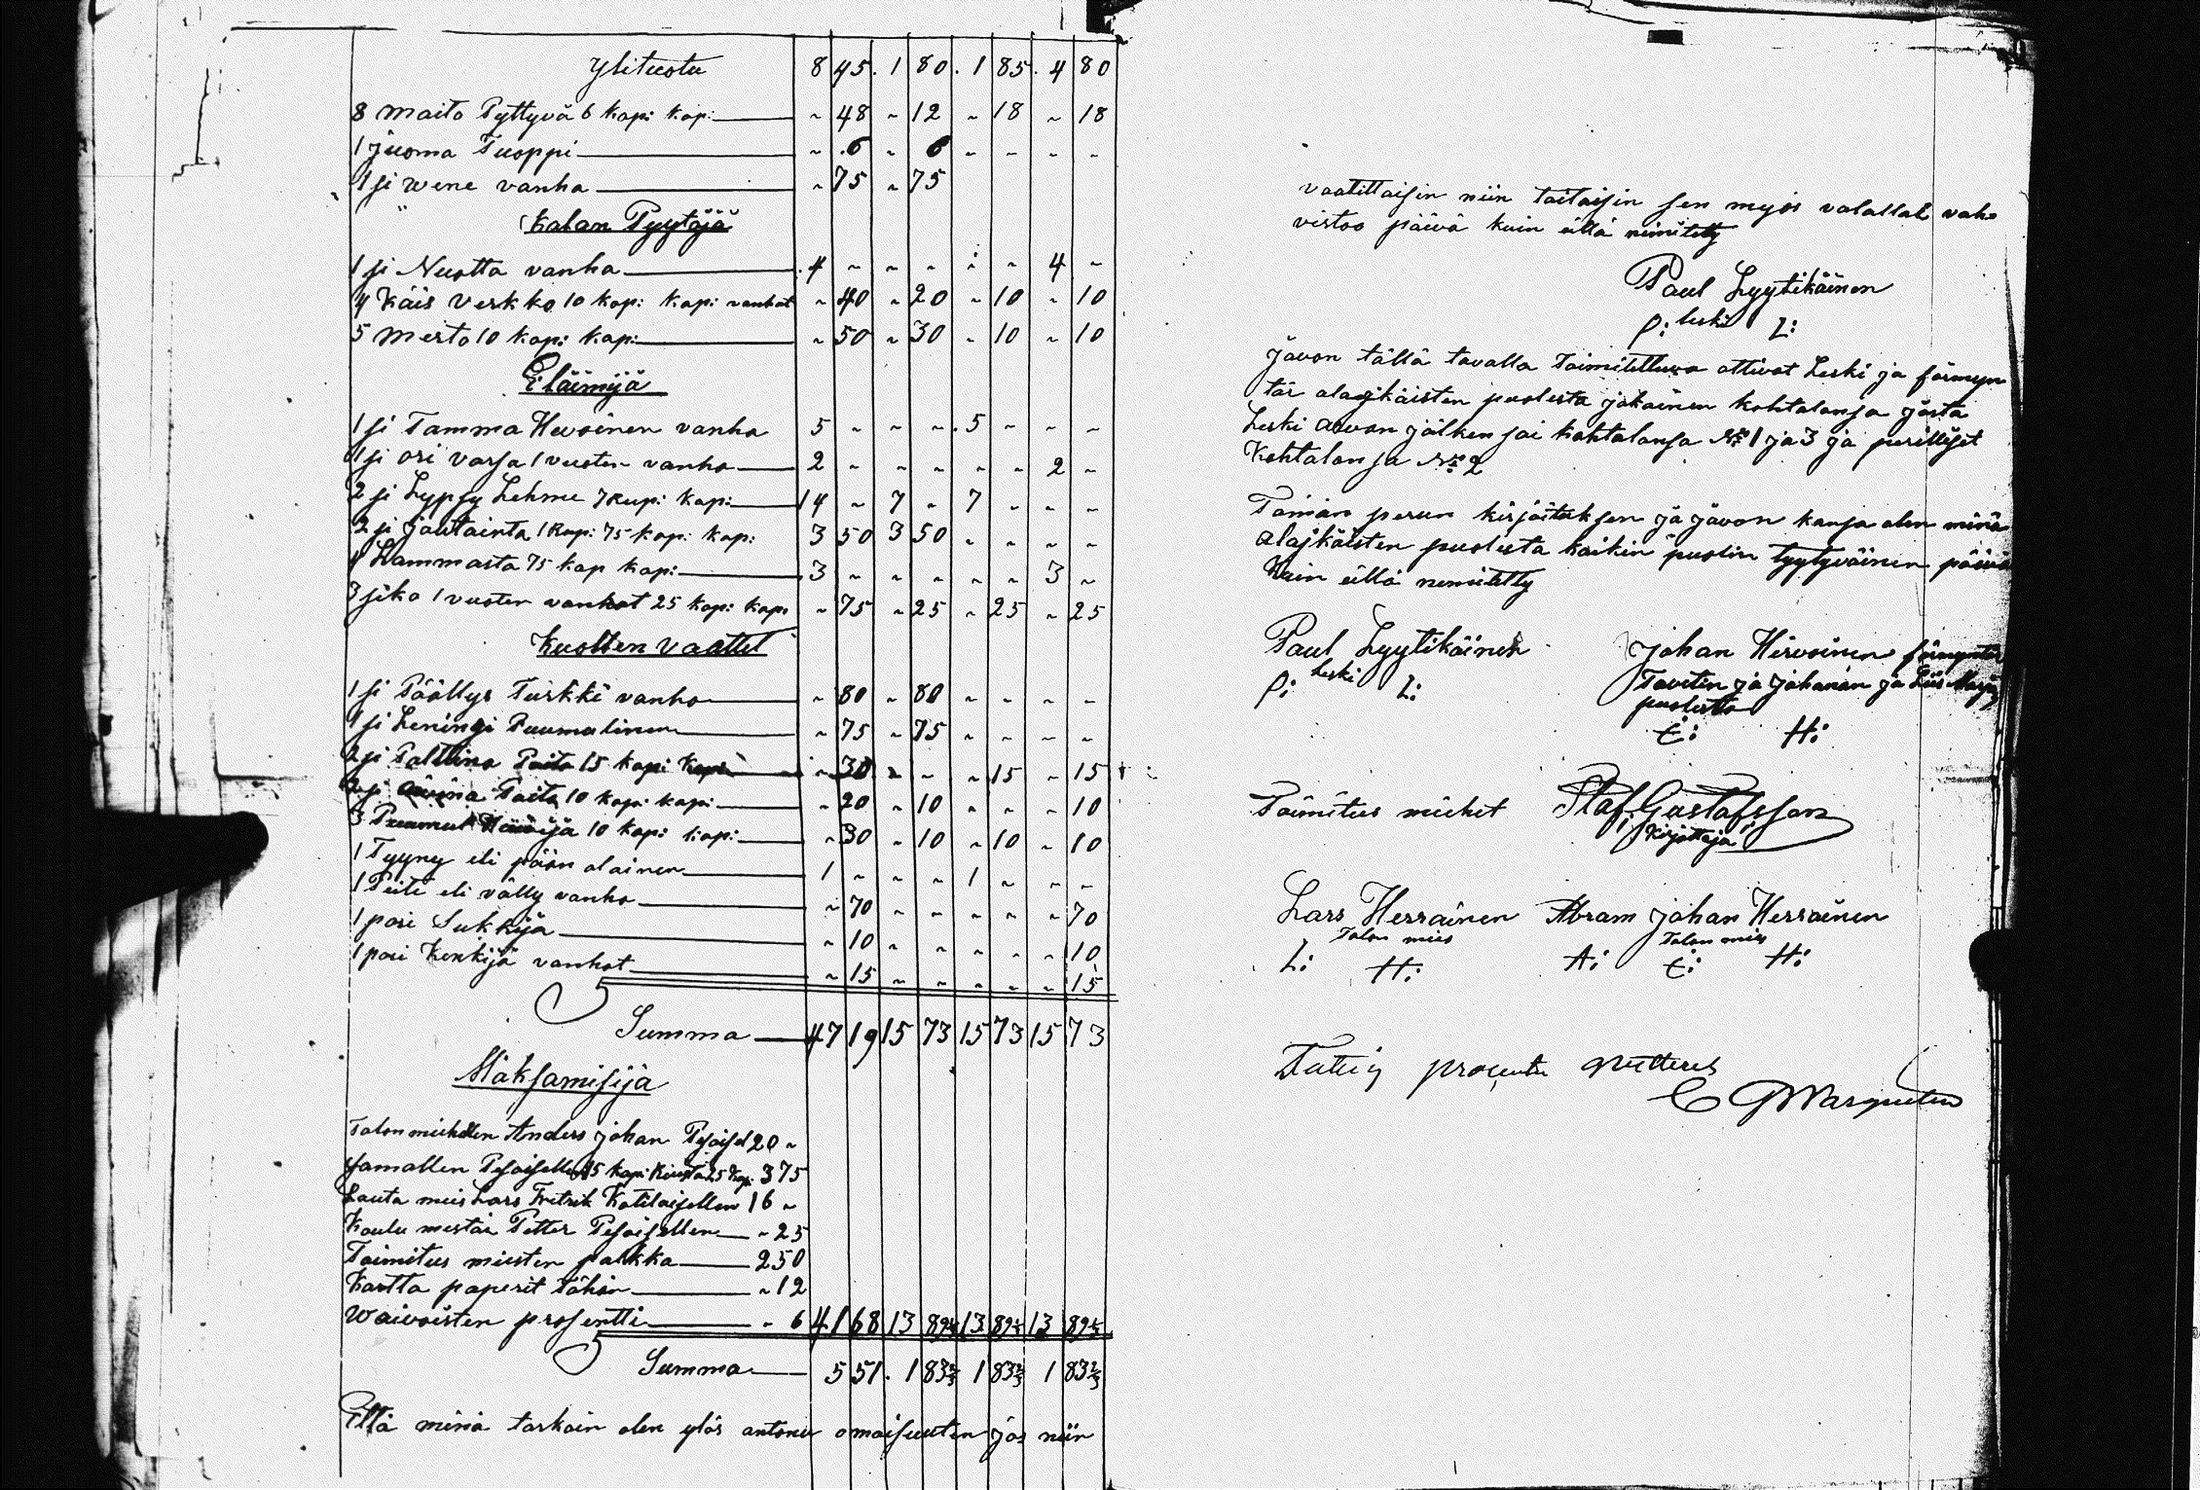 Ylituotu 8 45. 1 80. 1 85. 4 80
8 Maito Pyttyvä 6 kop: kap: ~ 48 ~ 12 ~ 18 ~ 18
1 Juoma Tuoppi ~ .6 ~ 6 ~ ~ ~ ~
1 si wene vanha ~ 75 ~ 75
Kalan Pyytöjä
1 si Nuotta vanha .4 ~ ~ ~ ~ ~ 4 ~
4 Käis Verkko 10 kop: kap: vanhat ~ 40 ~ 20 ~ 10 ~ 10
5 Merto 10 kop: kap: ~ 50 ~ 30 ~ 10 ~ 10
Eläimijä
1 si Tamma Hevoinen vanha 5 ~ ~ ~ .5 ~ ~ ~
1 si ori varsa 1 vuoten vanha 2 ~ ~ ~ ~ ~ 2 ~
2 si Lypsy Lehme 7 rup: kap: 14 ~ 7 ~ 7 ~ ~ ~
2 si joutainta 1 Rup: 75 kop: kap: 3 50 3 50 ~ ~ ~ ~
4 Lammasta 75 kop kap: 3 ~ ~ ~ ~ ~ 3 ~
3 sika 1 vuoten vanhat 25 kop: kap: ~ 75 ~ 25 ~ 25 ~ 25
Kuolten vaattet
1 si Päällys Turkki vanha ~ 80 ~ 80 ~ ~ ~ ~
1 si Leningi Puumulinen ~ 75 ~ 75 ~ ~ ~ ~
2 si Palttina Paita 15 kop: kap: ~ 30 ~ ~ ~ 15 ~ 15
2 si Paita 10 kop: kap: ~ 20 ~ 10 ~ ~ ~ 10
3 10 kop: kap: ~ 30 ~ 10 ~ 10 ~ 10
1 Tyyny eli pään alainen 1 ~ ~ ~ 1 ~ ~ ~
1 Peite eli välly vanha ~ 70 ~ ~ ~ ~ ~ 70
1 pari Sukkija ~ 10 ~ ~ ~ ~ ~ 10
1 pari Kenkijä vanhat ~ 15 ~ ~ ~ ~ ~ 15
Summa 47 19 15 73 15 73 15 73
Maksamisija
Talonmiehellen Anders Johan Pesoisel 20 ~
Samallen Pesoisellen 15 kap: 25 kap: 3 75
Lauta mies Lars Fretrik Kotilaisellen 16 ~
Koulu mestar Petter Pesoisellen ~ 25
Toimitus miesten palkka 2 50
Kartta paperit tähän ~ 12
Waivoisten prosentti ~ 6 41 68 13 89⅓ 13 89⅓ 13 89⅓
Summa 5 51. 1 83⅔ 1 83⅔ 1 83⅔
Että minä tarkoin olen ylös antanu omaisuuten jos niin
vaatittaisin niin taitaisin sen myös valallah vah=
vistoo päivä kuin eillä nimitetty
Paul Lyytikäinen
P: leski L:
Jaon tällä tavalla Toimitettuva ottivat Leski ja förmyn
tär alajkäisten puolesta jokainen kohtalonsa josta
Leski arvon jälken sai kohtalonsa No 1 ja 3 ja perilliset
Kohtalonsa No 2
Tämän perun kirjoituksen ja javon kansa olen minä
alajkäisten puolesta kaikin puolin tyytyväinen päivä
kuin eillä nemitetty
Paul Lyytikäinen
P: leski L:
Johan Hirvoinen förmyntär
Tavetin ja Johanan ja Liis
puolesta
E: H:
Toimitus miehet Staf: Gustafsson
Kirjottaja
Lars Herrainen Abram Johan Herrainen
Talon mies Talon mies
L: H: A: E: H:
Fattig procenten qvitteras